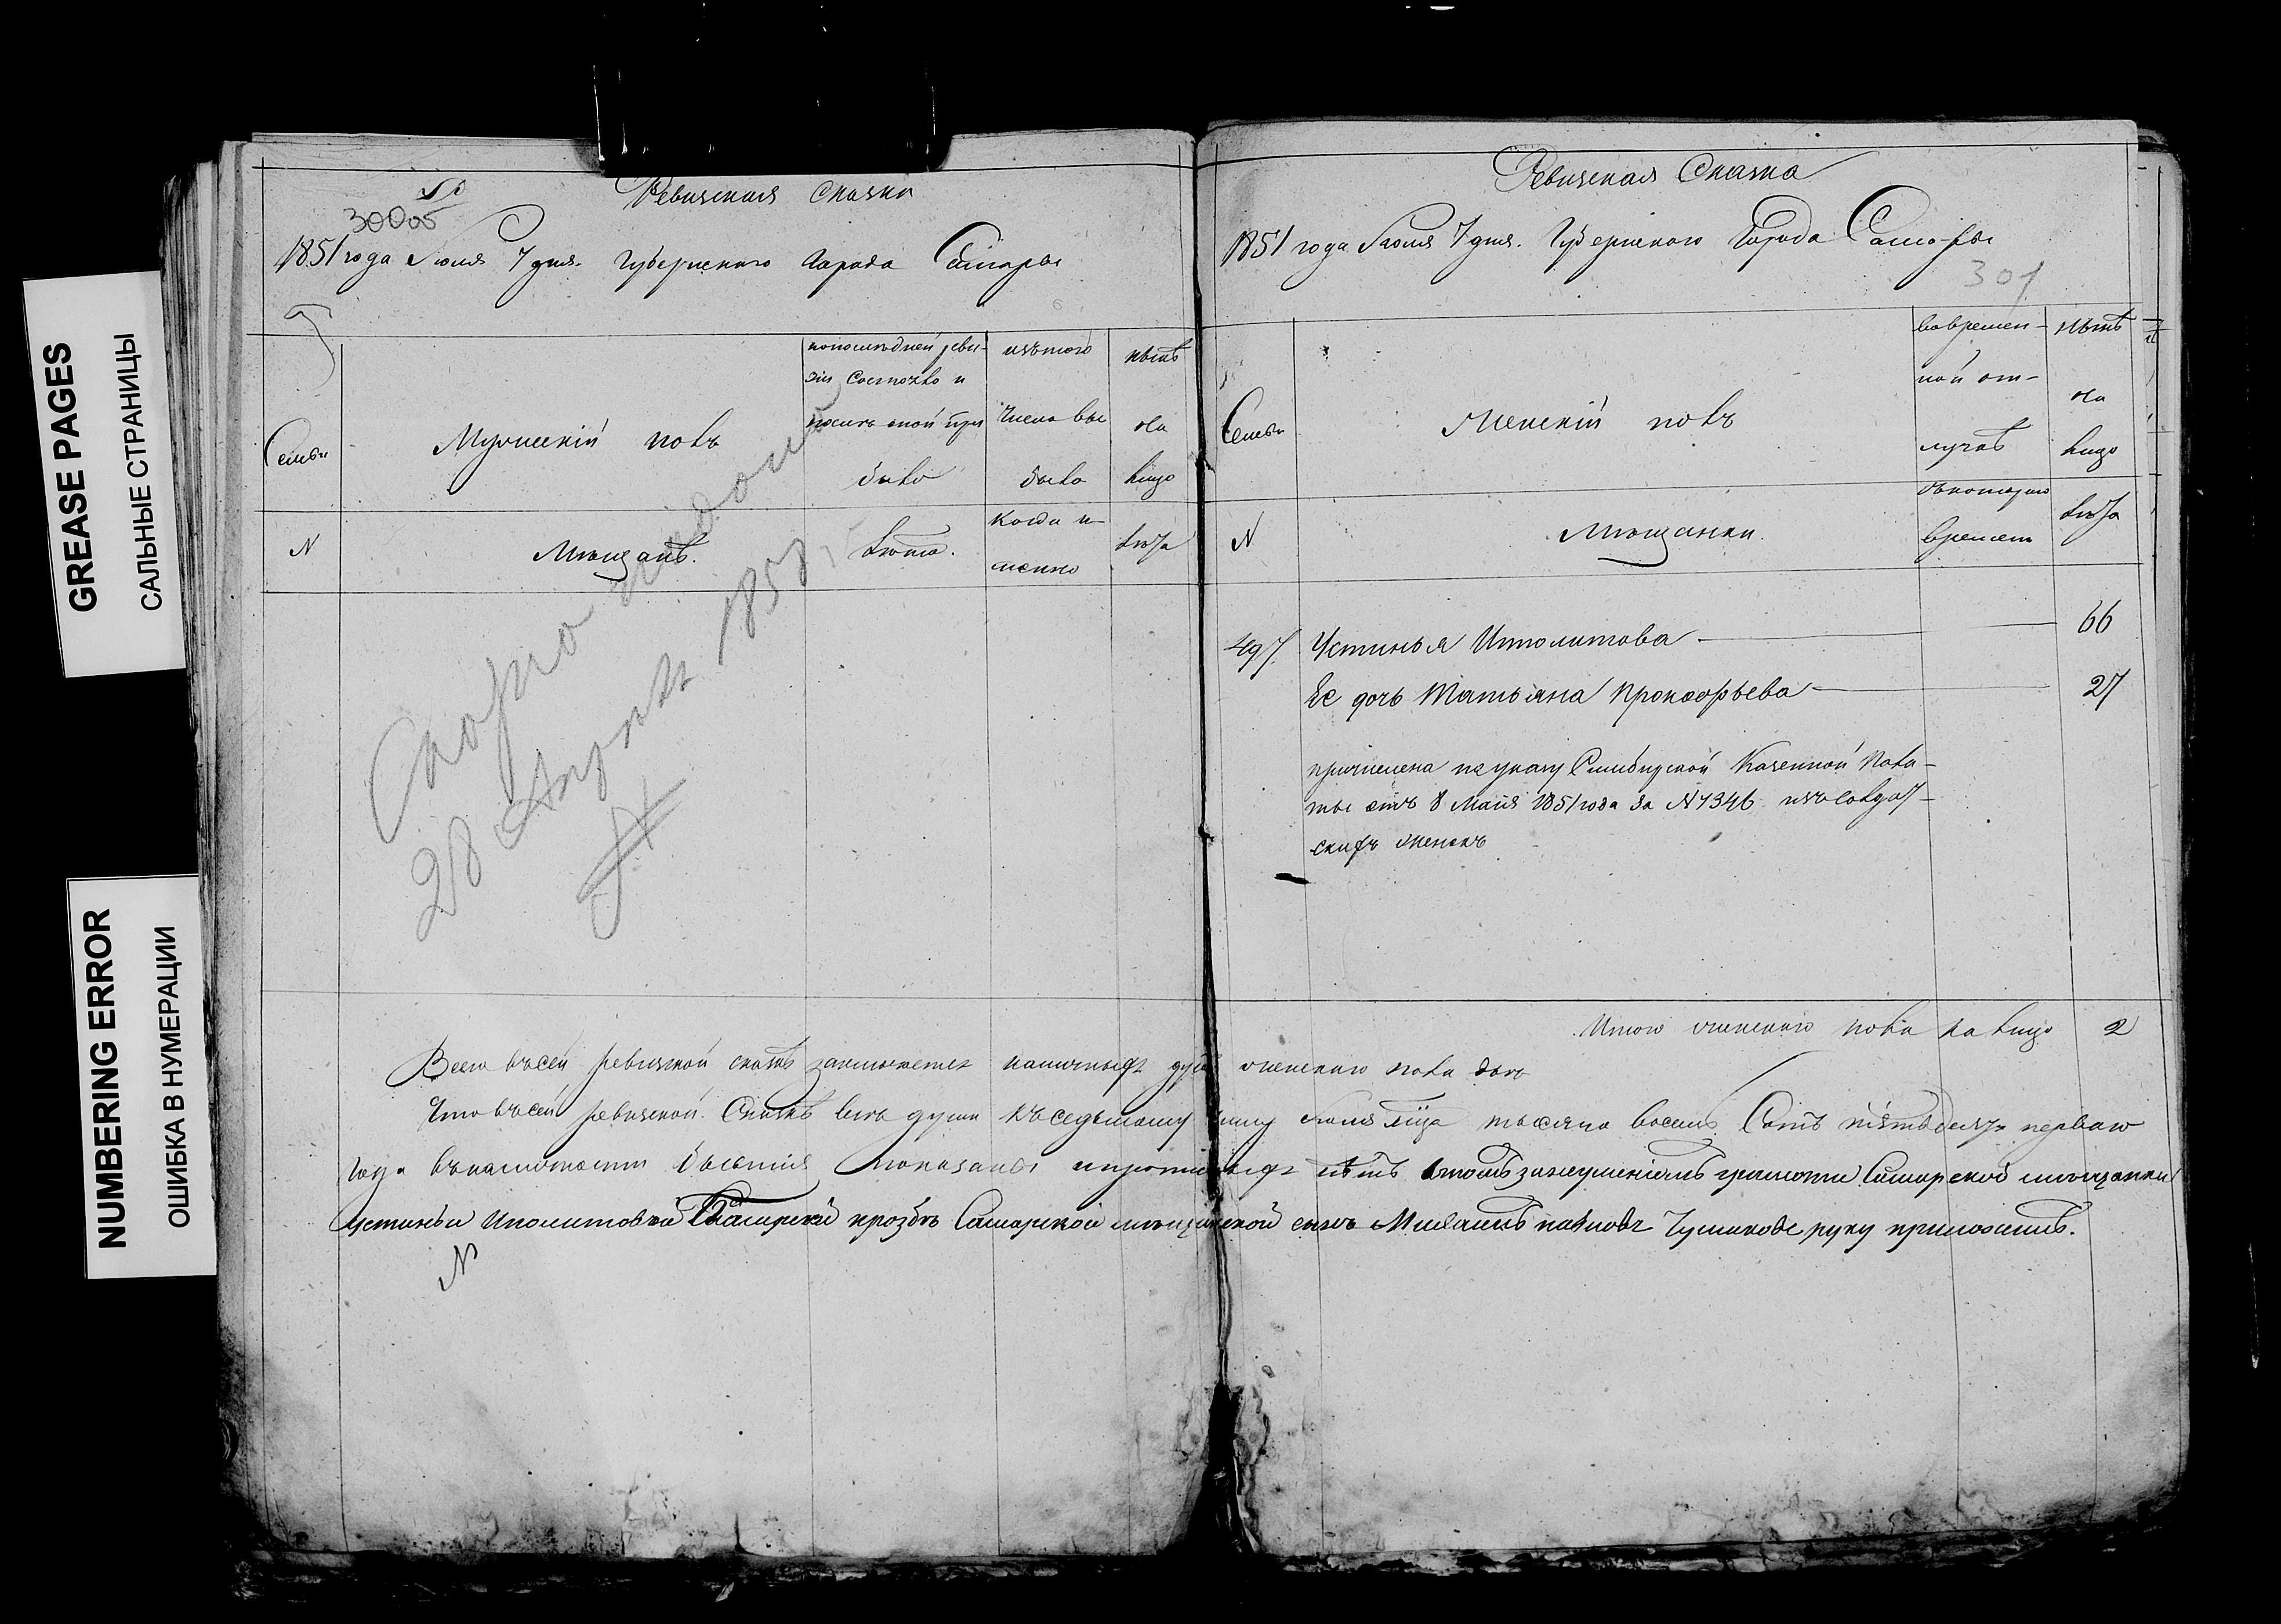 GREASE PAGES
САЛЬНЫЕ СТРАНИЦЫ
NUMBERING ERROR
ОШИБКА В НУМЕРАЦИИ
300об
Ревизская Сказка
1851 года Июля 7 дня. Губернскаго Города Самары
Семьи
Мужескій полъ
по последней реви-
зіи состояло и
после оной при
было
изъ того
числа вы
было
ныне
на
лицо
N
Мещанъ.
лета.
когда и-
менно
лета
28 Апреля 185
Ревизская Сказка
1851 года Июля 7 дня. Губернскаго Города Самары
301
Семьи
Женскій полъ
во времен-
ной от-
лучке
ныне
на
лицо
N
Мещанки
съ котораго
времени
лета
497 Устинья Ипполитова 66
Ее дочь Татьяна Прокофьева 27
причислена по указу Симбирской Казенной Пала-
ты отъ 8 Маія 1851 года за N 1346 изъ солдат-
скихъ женокъ
Итого женскаго пола на лицо 2
Всего въ сей ревизской сказке заключается наличныхъ душъ женскаго пола две
Что въ сей ревизской Сказке все души къ седьмому числу Июля м-ца тысяча восемь Сотъ пятьдесятъ перваго
года въ наличности бывшія показаны и прописныхъ нетъ в томъ за неумениемъ грамоты Самарской мещанки
Устиньи Иполитовой прозбе Самарской мещанской сынъ Михаилъ Чумаковъ руку приложилъ.
N